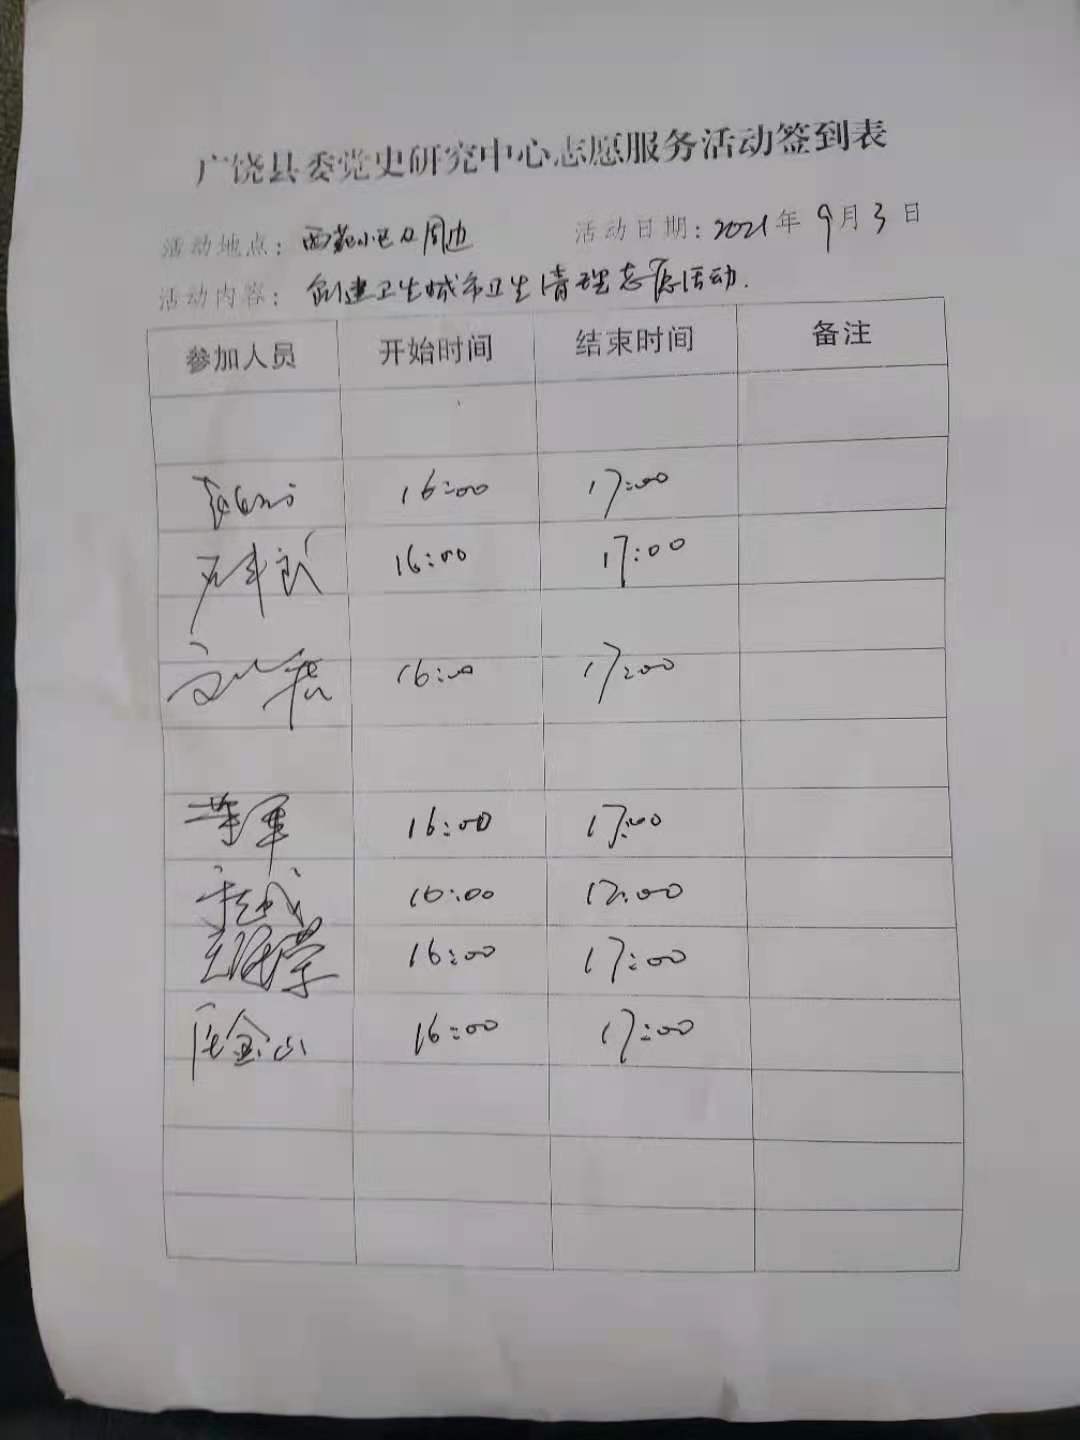 广饶县委党史研究中心志愿服务活动签到表
活动地点：西苑小区及周边 活动日期：2021年9月3日
活动内容：创建卫生城市卫生清理志愿活动.
参加人员 开始时间 结束时间 备注
16:00 17:00
16:00 17:00
16:00 17:00
董军 16:00 17:00
16:00 17:00
16:00 17:00
金山 16:00 17:00